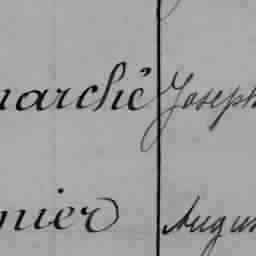 marché Joseph
nier Augus